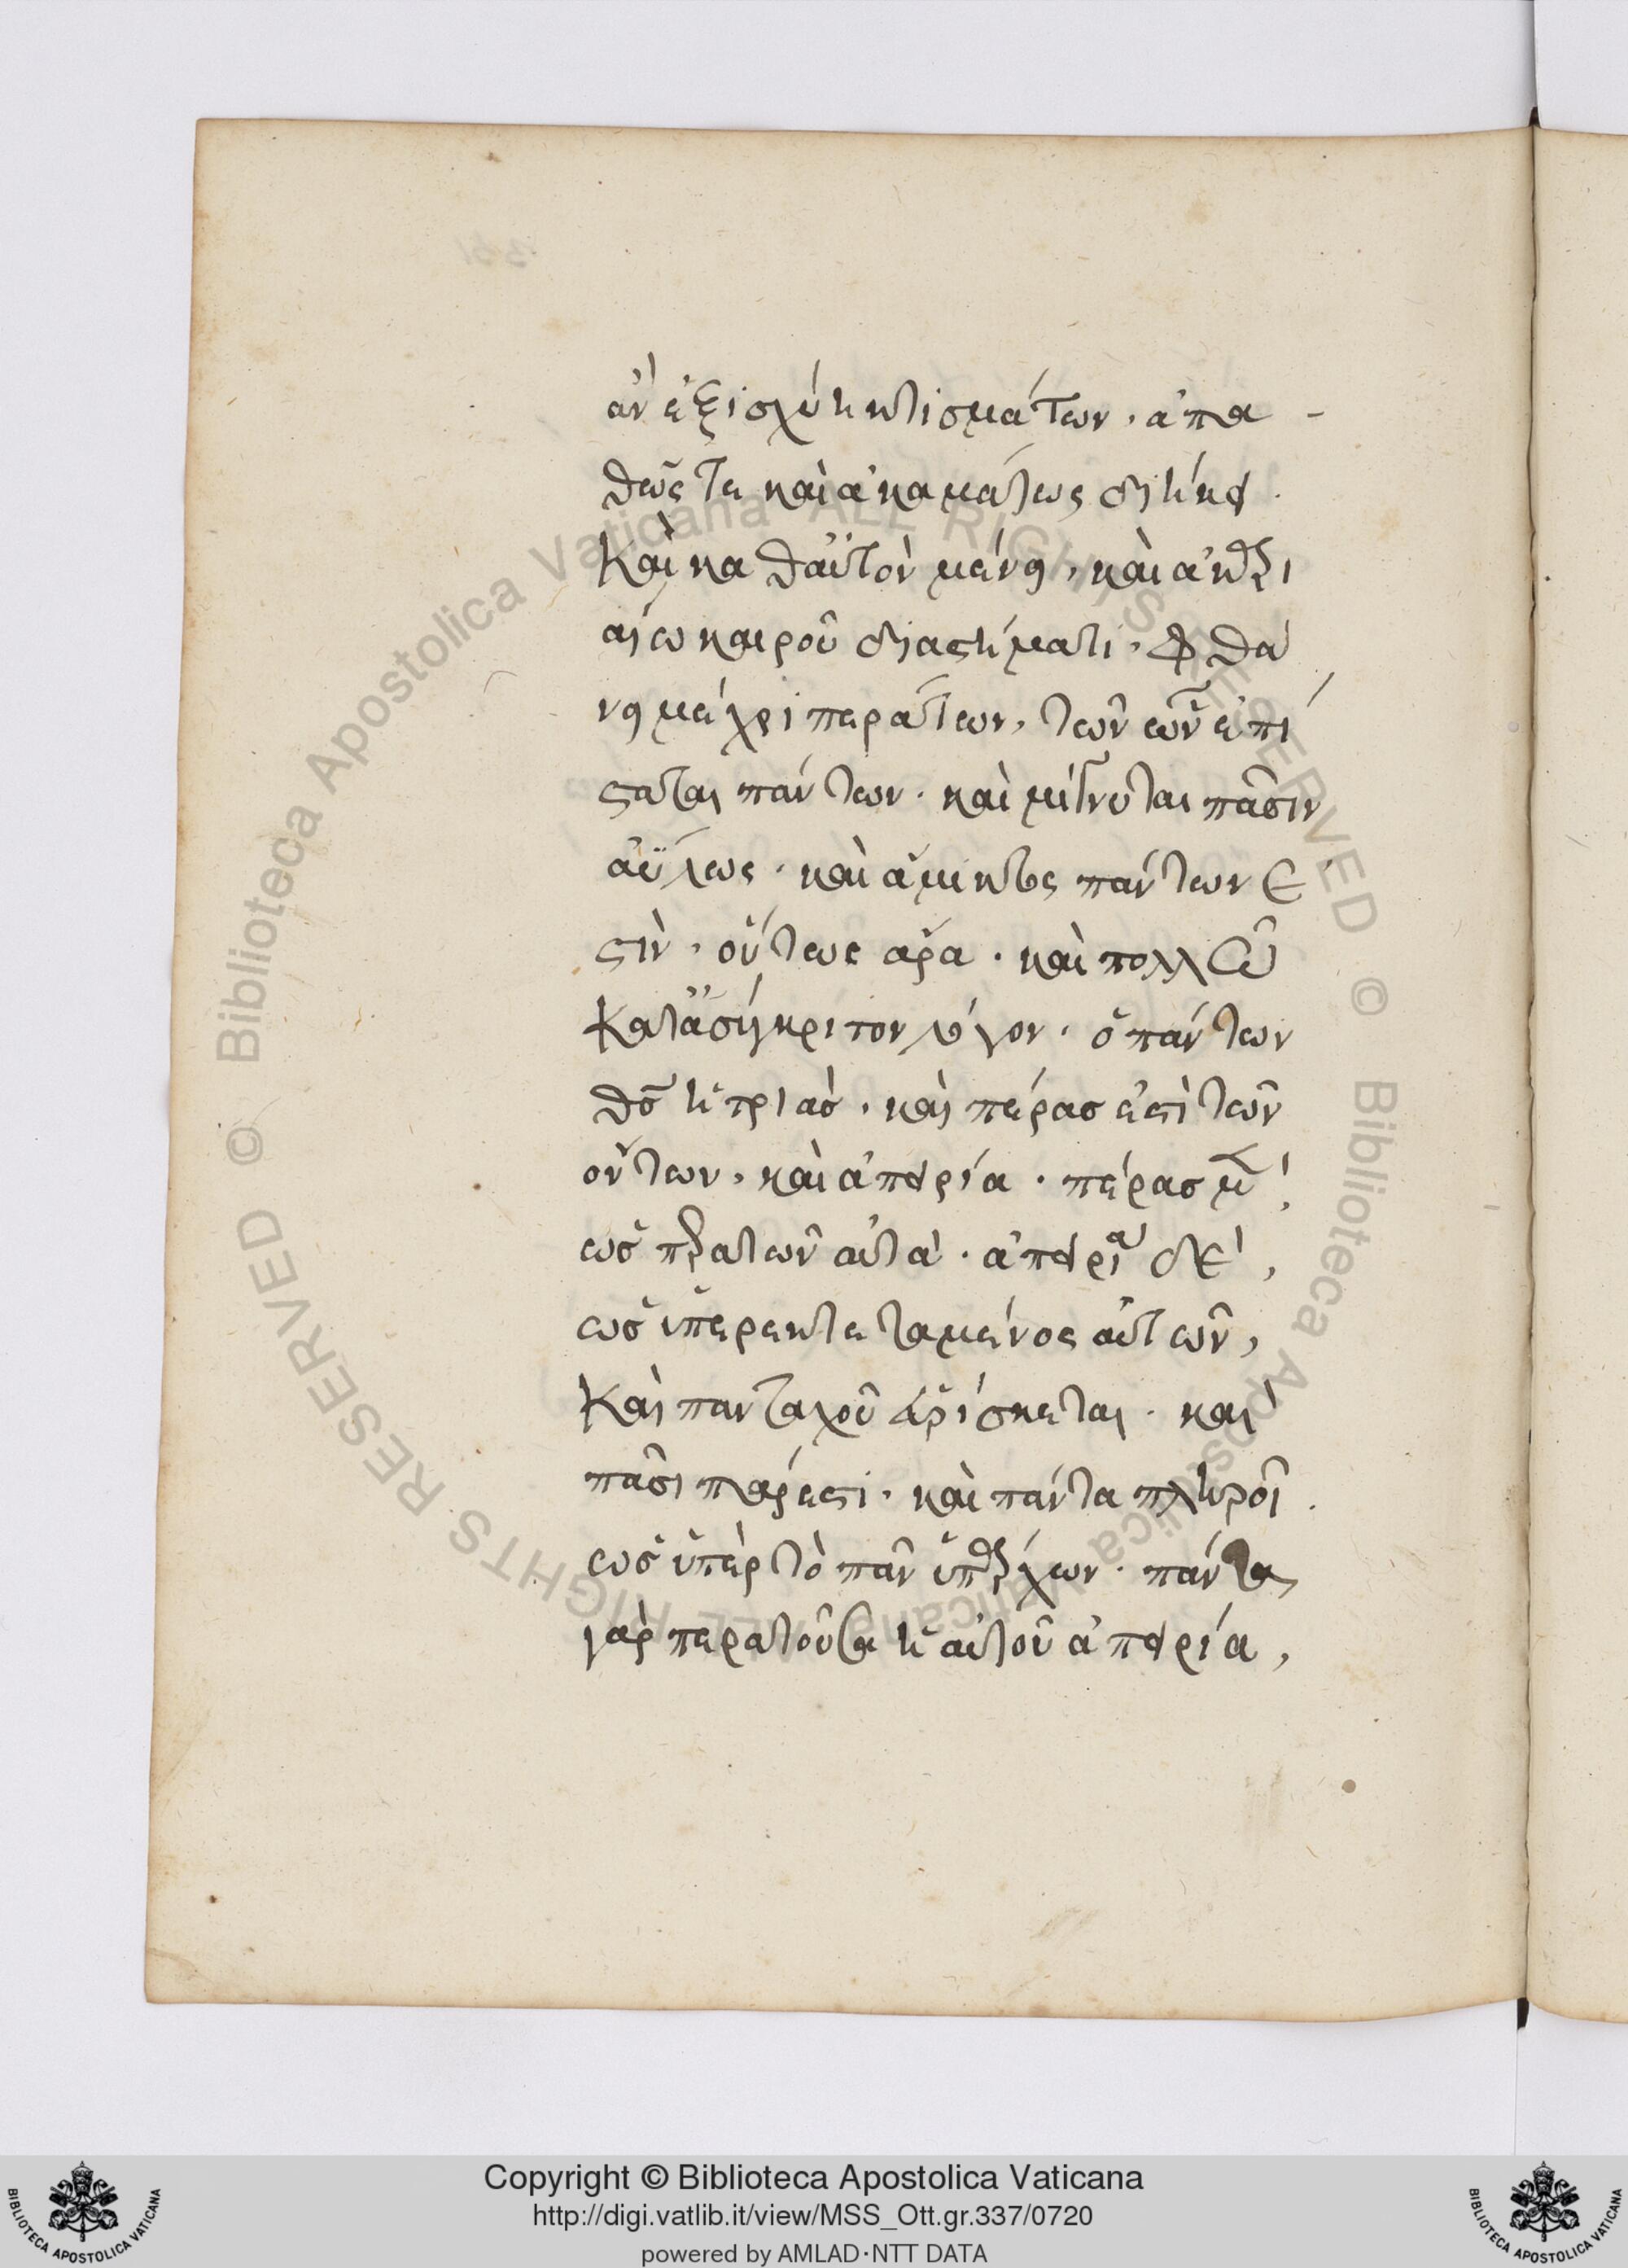 ἀν ἐξισχύη κτισμάτων, ἀπα-
θῶς τε καὶ ἀκαμάτως διήκει.
Καὶ καθ' αὑτὸν μένει, καὶ ἀκα
ριαίω καιροῦ διαστήματι, φθά
νει μέχρι περάτων, τῶν ὧν ἐπί
σταται πάντων. καὶ μίγνυται πᾶσιν
ἀΰλως. καὶ ἄμικτος πάντων ἐ
στὶν, οὕτως ἄρα. καὶ πολλῶ
Κατὰ ἀσύγκριτον λόγον. ὁ πάντων
θς ἡ τριὰς, καὶ πέρας ἐστὶ τῶν
ὄντων, καὶ ἀπειρία. πέρας μὲν,
ὡς περατῶν αὐτά. ἀπειρία δὲ,
ὡς ὑπερεκτεταμένος αὐτῶν,
Καὶ πανταχοῦ εὑρίσκεται. καὶ
πᾶσι πάρεστι. καὶ πάντα πληροῖ.
ὡς ὑπὲρ τὸ πᾶν ὑπάρχων. πάντα
γὰρ περατοῦσα ἡ αὐτοῦ ἀπειρία,
Copyright © Biblioteca Apostolica Vaticana
http://digi.vatlib.it/view/MSS_Ott.gr.337/0720
powered by AMLAD·NTT DATA
BIBLIOTECA APOSTOLICA VATICANA
BIBLIOTECA APOSTOLICA VATICANA
© Biblioteca Apostolica Vaticana ALL RIGHTS RESERVED © Biblioteca Apostolica Vaticana ALL RIGHTS RESERVED